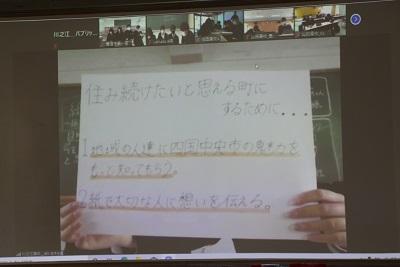 住み続けたいと思える町に
するために...
1 地域の人達に四国中央市の魅力を
もっと知ってもらう。
2 紙で大切な人に想いを伝える。